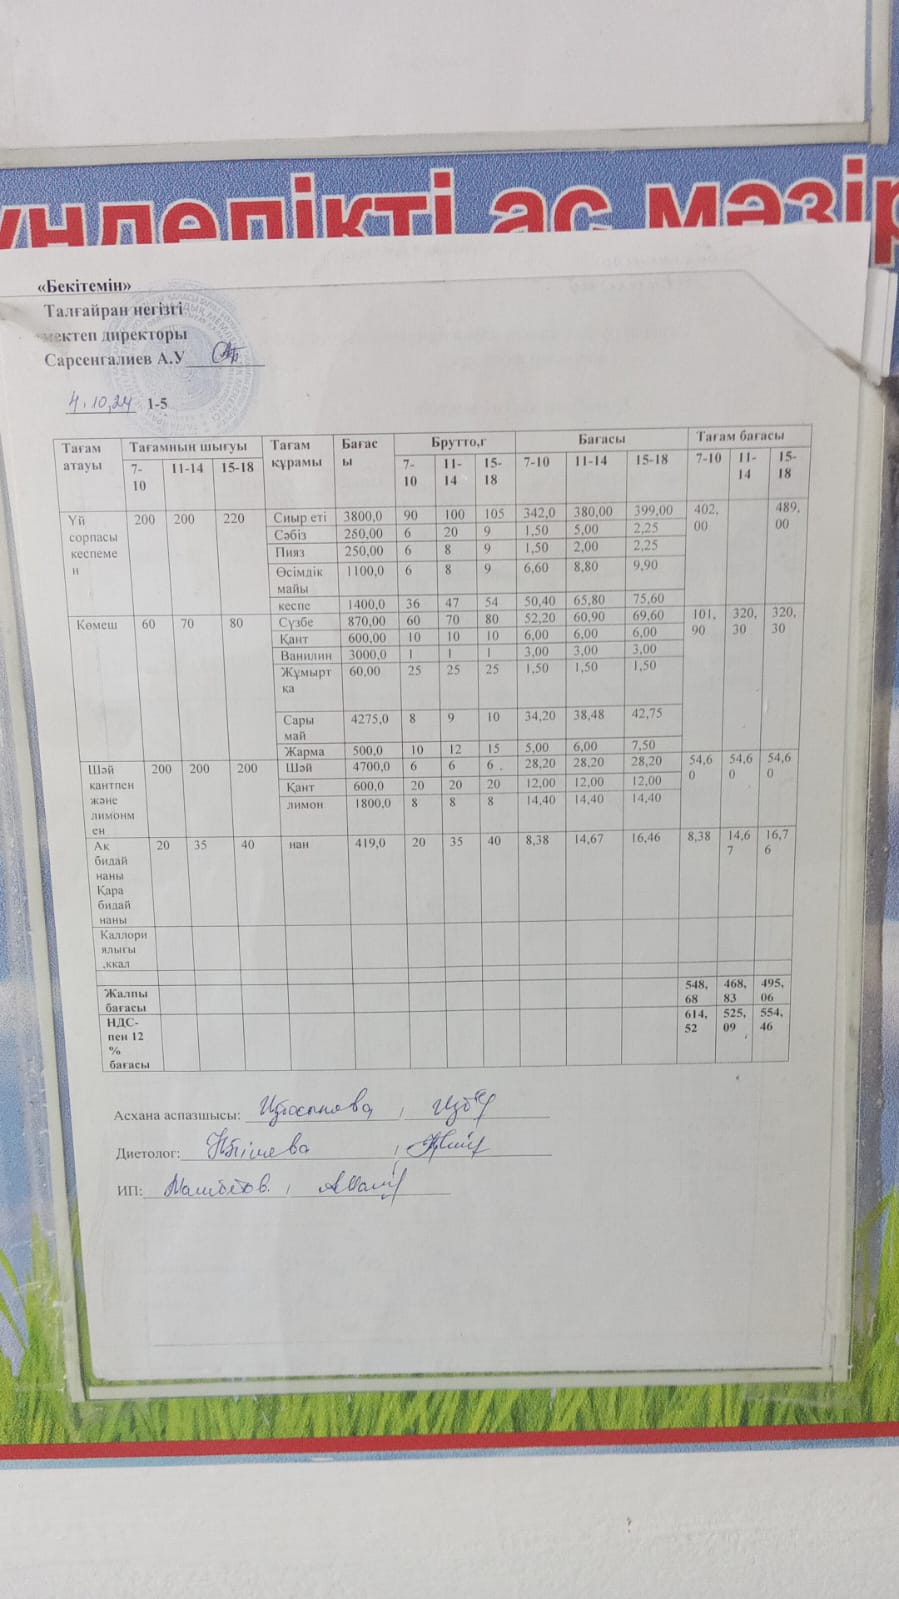 үнделікті ас мәзір
«Бекітемін»
Талғайран негізгі
мектеп директоры
Сарсенгалиев А.У
4.10.24 1-5
Тағам атауы Тағамның шығуы Тағам құрамы Бағасы Брутто,г Бағасы Тағам бағасы
7-10 11-14 15-18 7-10 11-14 15-18 7-10 11-14 15-18 7-10 11-14 15-18
Үй сорпасы кеспемен 200 200 220 Сиыр еті 3800,0 90 100 105 342,0 380,00 399,00 402,00 489,00
Сәбіз 250,00 6 20 9 1,50 5,00 2,25
Пияз 250,00 6 8 9 1,50 2,00 2,25
Өсімдік майы 1100,0 6 8 9 6,60 8,80 9,90
кеспе 1400,0 36 47 54 50,40 65,80 75,60
Көмеш 60 70 80 Сүзбе 870,00 60 70 80 52,20 60,90 69,60 101,90 320,30 320,30
Қант 600,00 10 10 10 6,00 6,00 6,00
Ванилин 3000,0 1 1 1 3,00 3,00 3,00
Жұмыртқа 60,00 25 25 25 1,50 1,50 1,50
Сары май 4275,0 8 9 10 34,20 38,48 42,75
Жарма 500,0 10 12 15 5,00 6,00 7,50
Шәй кантпен және лимонмен 200 200 200 Шәй 4700,0 6 6 6 28,20 28,20 28,20 54,60 54,60 54,60
Қант 600,0 20 20 20 12,00 12,00 12,00
лимон 1800,0 8 8 8 14,40 14,40 14,40
Ак бидай наны Қара бидай наны 20 35 40 нан 419,0 20 35 40 8,38 14,67 16,46 8,38 14,67 16,76
Каллориялығы .ккал
Жалпы бағасы 548,68 468,83 495,06
НДС-пен 12 % бағасы 614,52 525,09 554,46
Асхана аспазшысы:
Диетолог:
ИП: